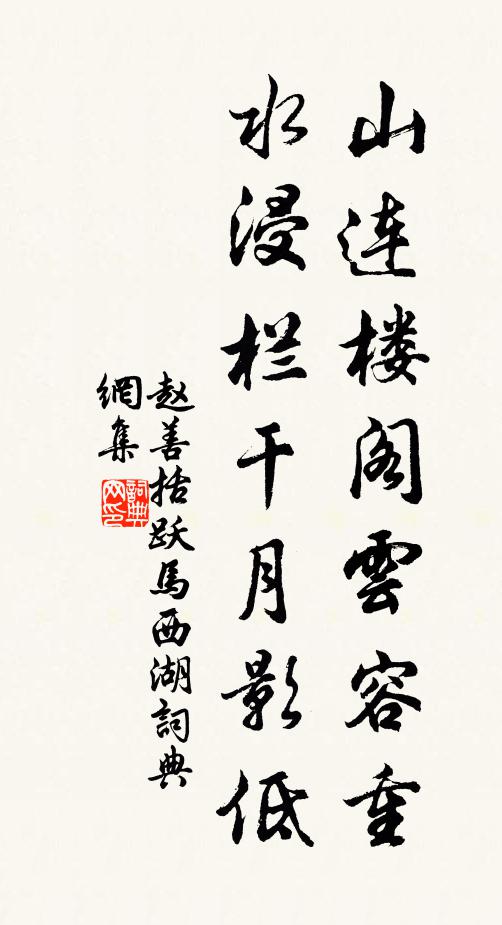 山连楼阁雲容重
水浸栏干月影低
赵善括跃馬西湖詞典
網集
詞典
网印